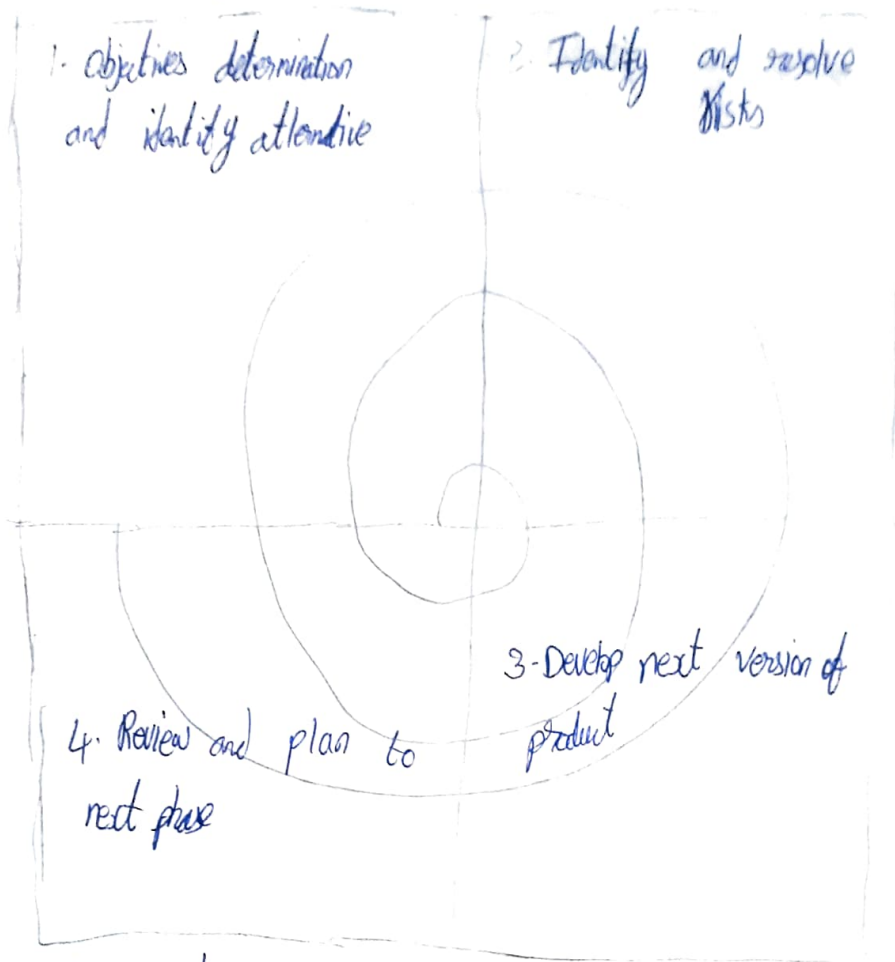 1. Objectives determination
and identify alternative
2. Identify and resolve
Risks
3-Develop next version of
product
4. Review and plan to
next phase